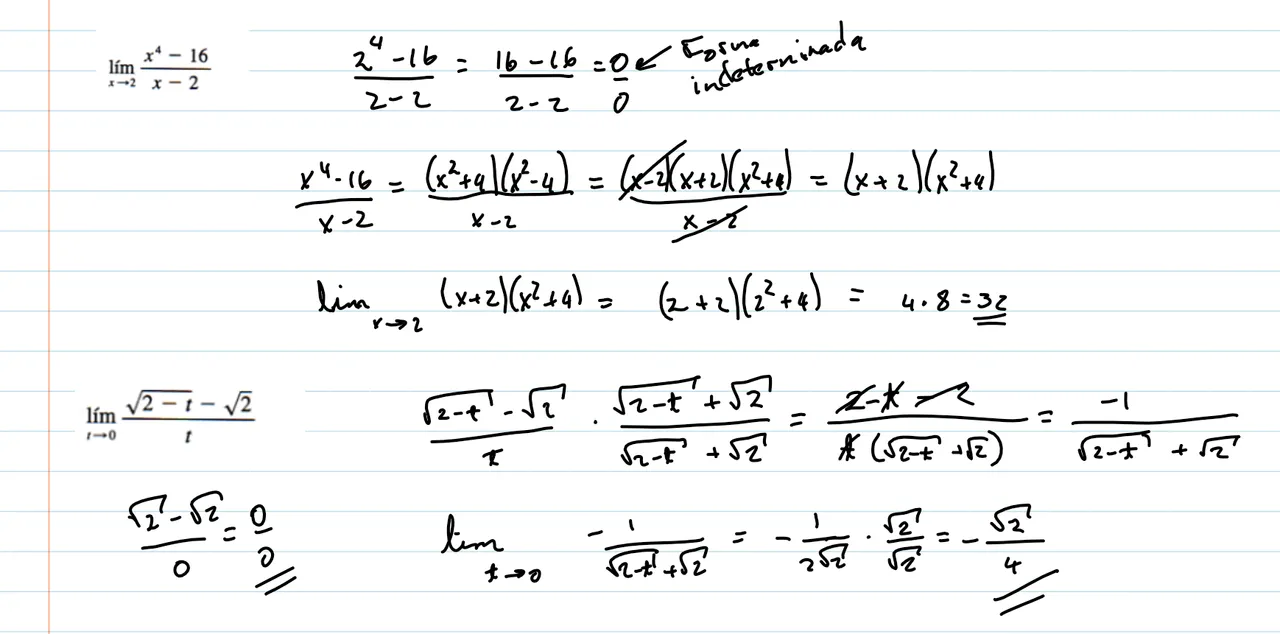 lím x→2 (x⁴ − 16)/(x − 2)
(2⁴ − 16)/(2 − 2) = (16 − 16)/(2 − 2) = 0/0 ← Forma indeterminada
(x⁴ − 16)/(x − 2) = (x² + 4)(x² − 4)/(x − 2) = (x − 2)(x + 2)(x² + 4)/(x − 2) = (x + 2)(x² + 4)
lim x→2 (x + 2)(x² + 4) = (2 + 2)(2² + 4) = 4 · 8 = 32
lím t→0 (√(2 − t) − √2)/t
(√(2 − t) − √2)/t · (√(2 − t) + √2)/(√(2 − t) + √2) = (2 − t − 2)/(t(√(2 − t) + √2)) = −1/(√(2 − t) + √2)
(√2 − √2)/0 = 0/0
lim t→0 −1/(√(2 − t) + √2) = −1/(2√2) · √2/√2 = −√2/4